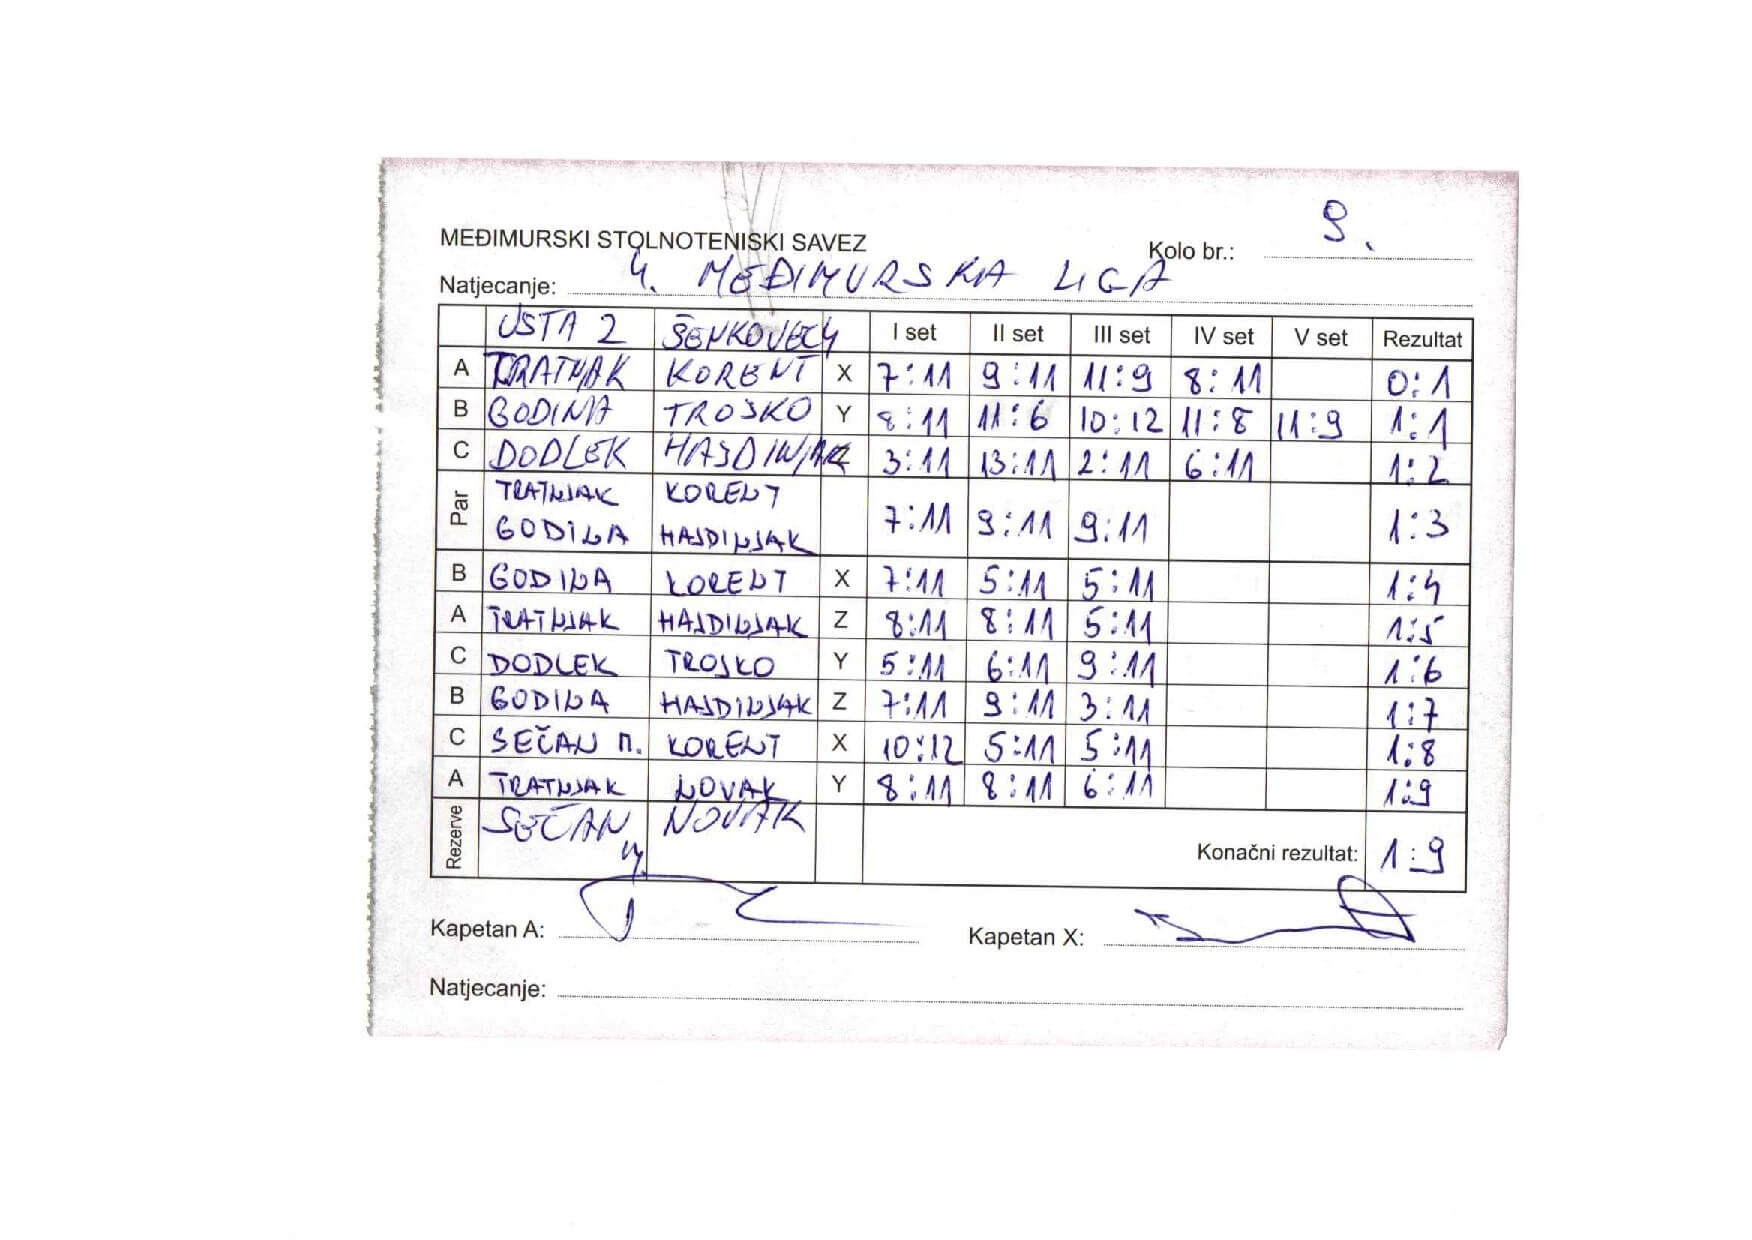 MEĐIMURSKI STOLNOTENISKI SAVEZ
Kolo br.: 9.
Natjecanje: 4. MEĐIMURSKA LIGA
USTA 2 ŠENKOVEC 4 I set II set III set IV set V set Rezultat
A TRATNJAK KORENT X 7:11 9:11 11:9 8:11 0:1
B GODINA TROJKO Y 8:11 11:6 10:12 11:8 11:9 1:1
C DODLEK HAJDINJAK Z 3:11 13:11 2:11 6:11 1:2
Par TRATNJAK KORENT
GODINA HAJDINJAK 7:11 9:11 9:11 1:3
B GODINA KORENT X 7:11 5:11 5:11 1:4
A TRATNJAK HAJDINJAK Z 8:11 8:11 5:11 1:5
C DODLEK TROJKO Y 5:11 6:11 9:11 1:6
B GODINA HAJDINJAK Z 7:11 9:11 3:11 1:7
C SEČAN M. KORENT X 10:12 5:11 5:11 1:8
A TRATNJAK NOVAK Y 8:11 8:11 6:11 1:9
Rezerve SEČAN M. NOVAK
Konačni rezultat: 1:9
Kapetan A: Kapetan X:
Natjecanje: